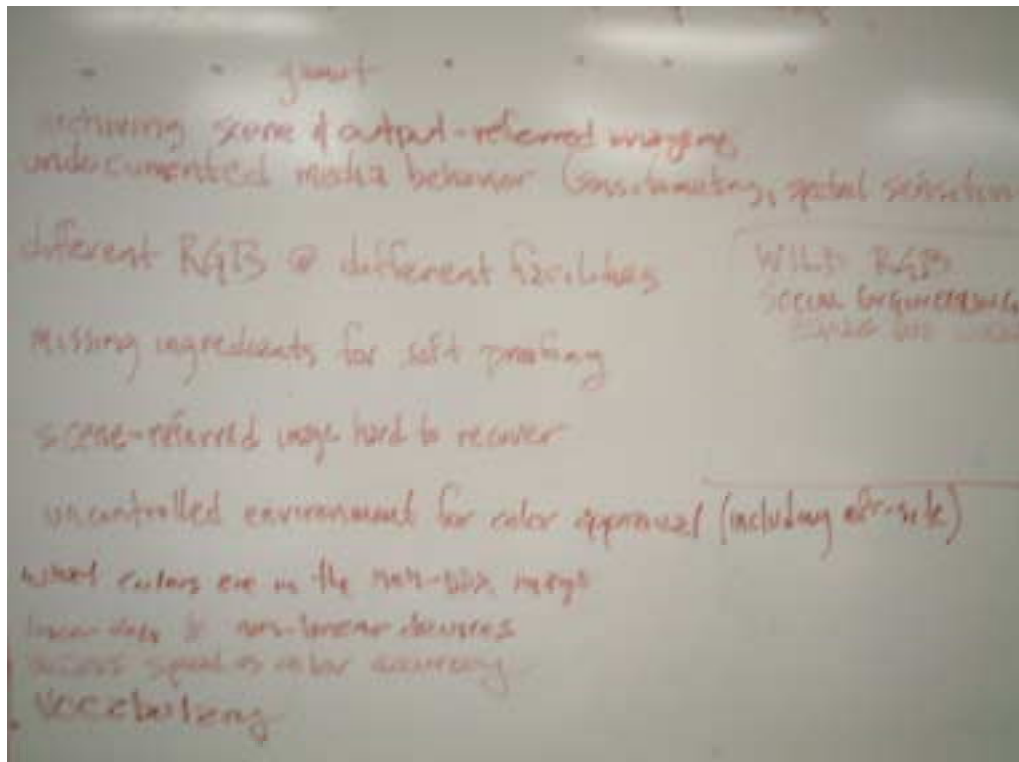 gamut
archiving scene & output-referred imagery
undocumented media behavior (sensitometry, spatial
different RGB @ different facilities
WILD RGB
Social Engineering
missing ingredients for soft proofing
scene-referred image hard to recover
uncontrolled environment for color approval (including off-site)
what colors are in the image
non-linear devices
access speed vs color accuracy
Vocabulary